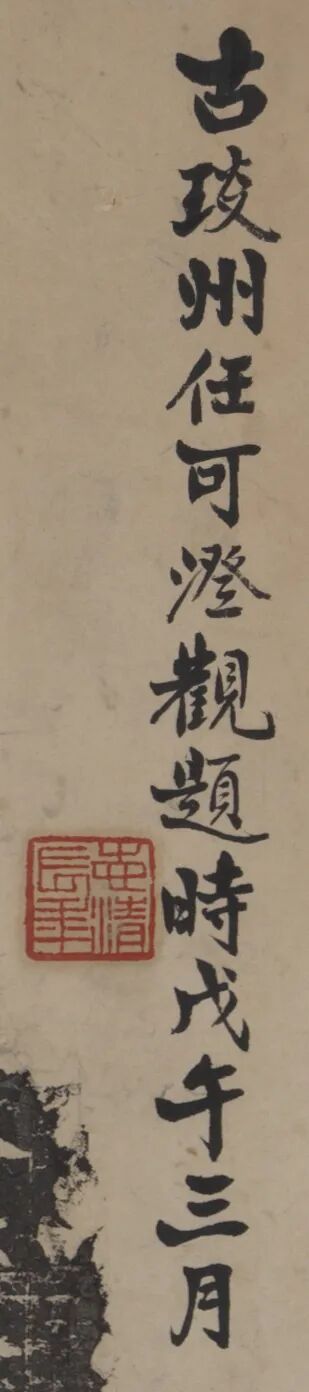 古琰州任可澄觀題時戊午三月
志清長年